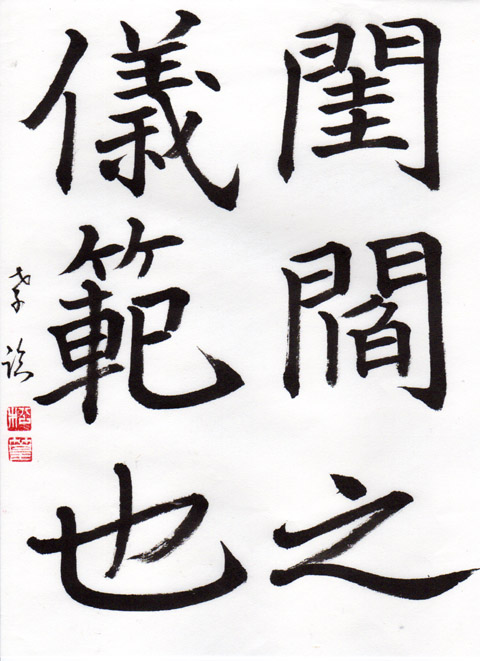 閨閻之
儀範也